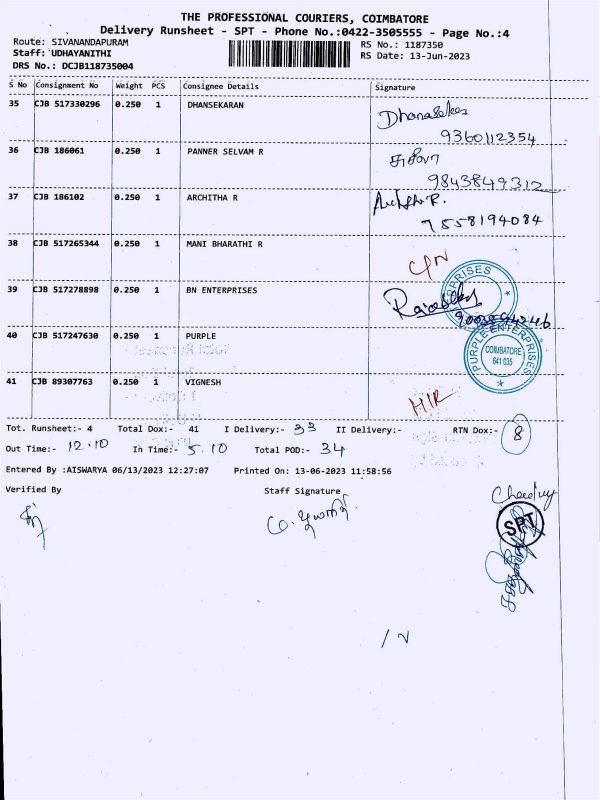 THE PROFESSIONAL COURIERS, COIMBATORE
Delivery Runsheet - SPT - Phone No.:0422-3505555 - Page No.:4
Route: SIVANANDAPURAM RS No.: 1187350
Staff: UDHAYANITHI RS Date: 13-Jun-2023
DRS No.: DCJB118735004
S No Consignment No Weight PCS Consignee Details Signature
35 CJB 517330296 0.250 1 DHANSEKARAN Dhanasekar
9360112354
36 CJB 186061 0.250 1 PANNER SELVAM R
9843849312
37 CJB 186102 0.250 1 ARCHITHA R Architha R.
7558194084
38 CJB 517265344 0.250 1 MANI BHARATHI R
39 CJB 517278898 0.250 1 BN ENTERPRISES
40 CJB 517247630 0.250 1 PURPLE
PURPLE ENTERPRISES
COIMBATORE
641 035
41 CJB 89307763 0.250 1 VIGNESH
Tot. Runsheet:- 4 Total Dox:- 41 I Delivery:- 33 II Delivery:- RTN Dox:- 8
Out Time:- 12.10 In Time:- 5.10 Total POD:- 34
Entered By :AISWARYA 06/13/2023 12:27:07 Printed On: 13-06-2023 11:58:56
Verified By Staff Signature
SPT